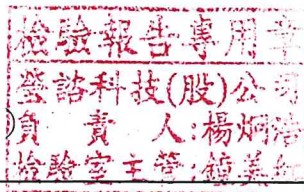 檢驗報告專用章
螢諮科技(股)公司
負責人:楊炯浩
檢驗室主管:鐘美